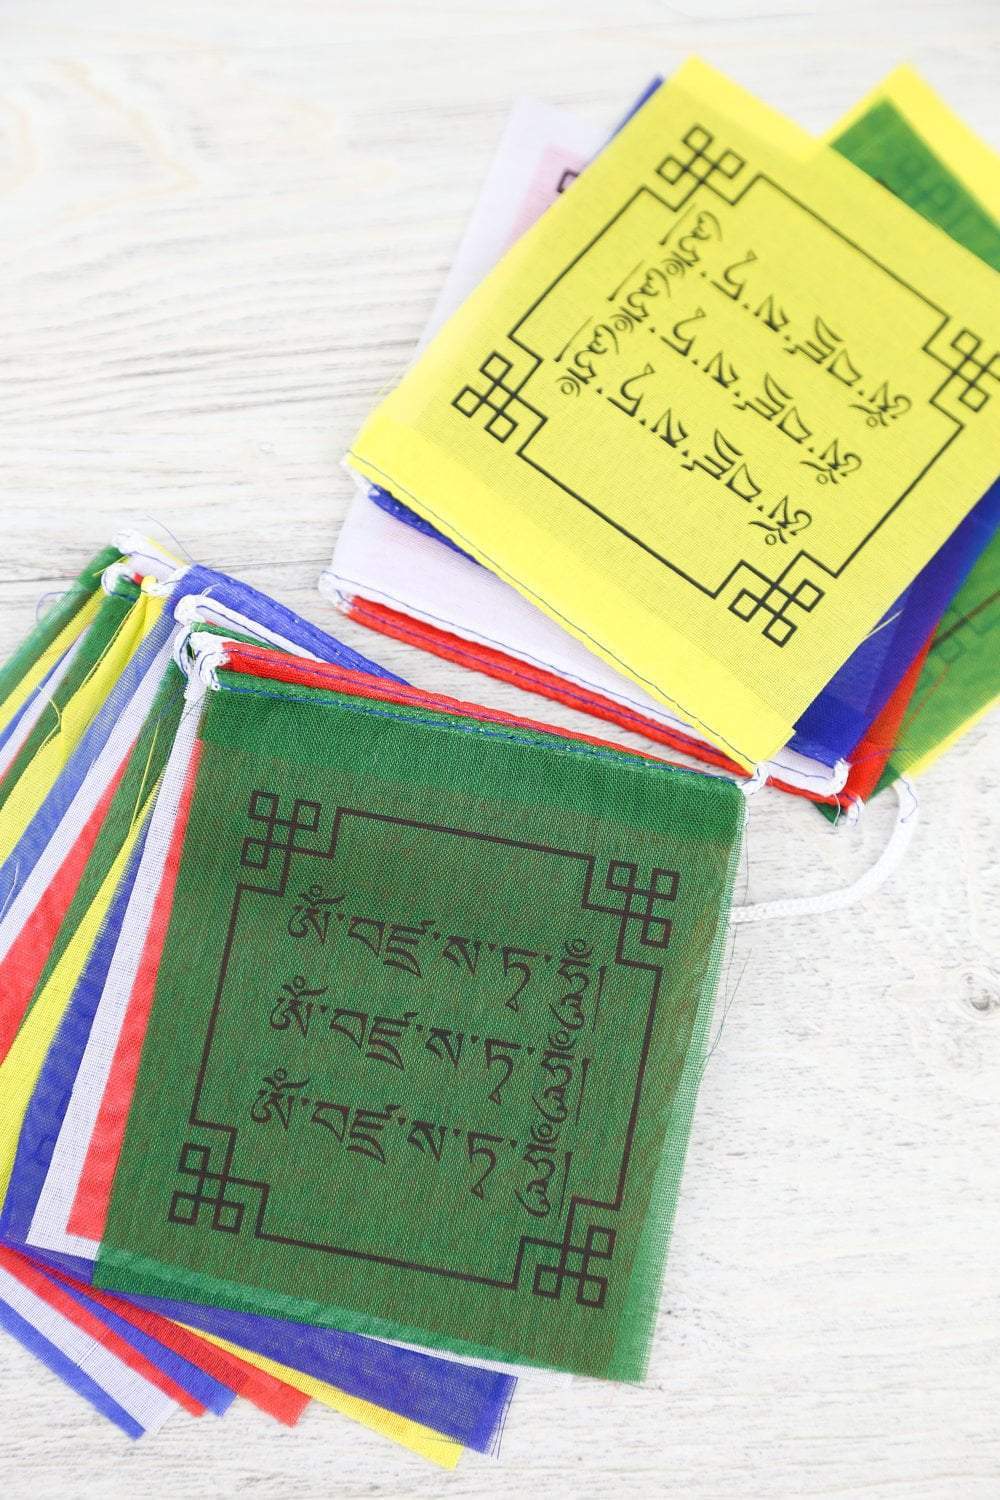 ཨོཾ་བཛྲ་ས་ཏྭ་
ཨོཾ་བཛྲ་ས་ཏྭ་
ཨོཾ་བཛྲ་ས་ཏྭ་
ཨོཾ་བཛྲ་ས་ཏྭ་
ཨོཾ་བཛྲ་ས་ཏྭ་
ཨོཾ་བཛྲ་ས་ཏྭ་